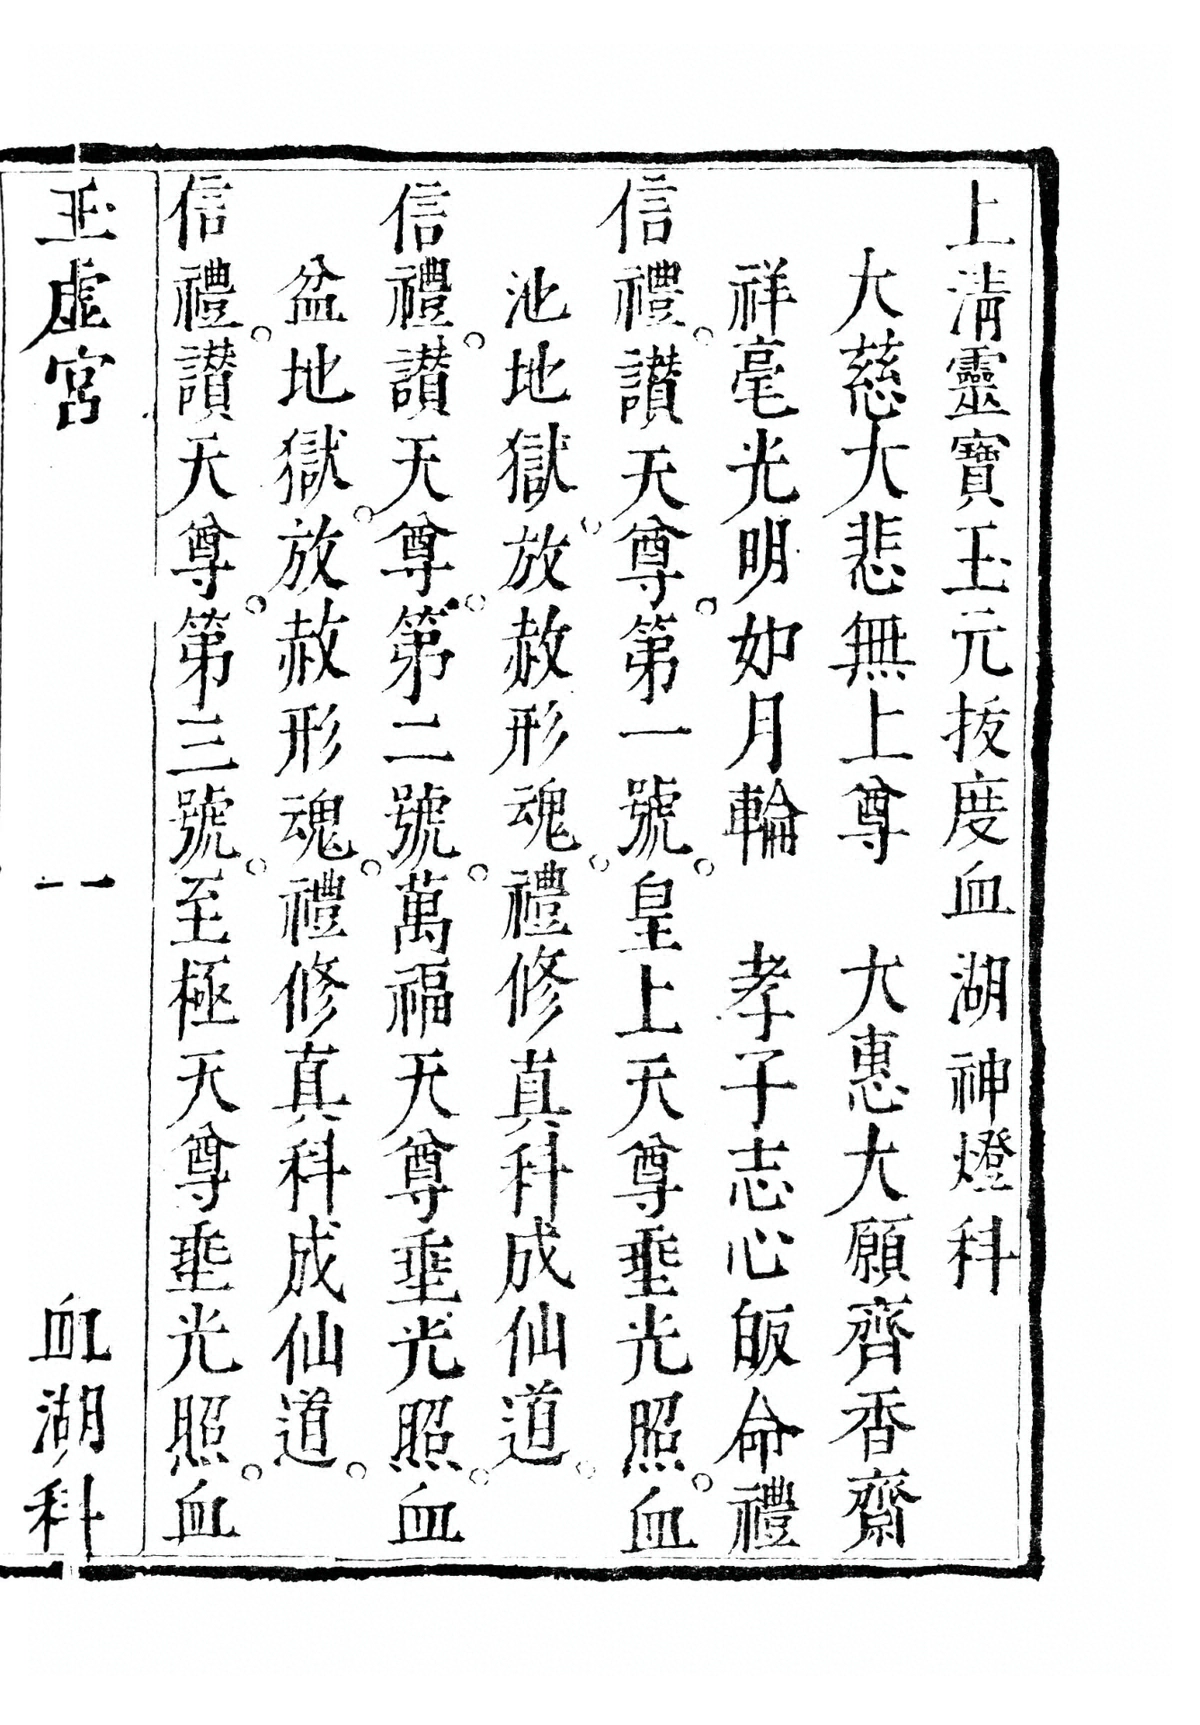 上清靈寶玉元拔度血湖神燈科
大慈大悲無上尊　大惠大願齊香齋
祥毫光明如月輪　孝子志心皈命禮
信禮讃天尊第一號皇上天尊埀光照血
池地獄放赦形魂禮修真科成仙道
信禮讃天尊第二號萬福天尊埀光照血
盆地獄放赦形魂禮修真科成仙道
信禮讃天尊第三號至極天尊埀光照血
玉虛宮　一　血湖科